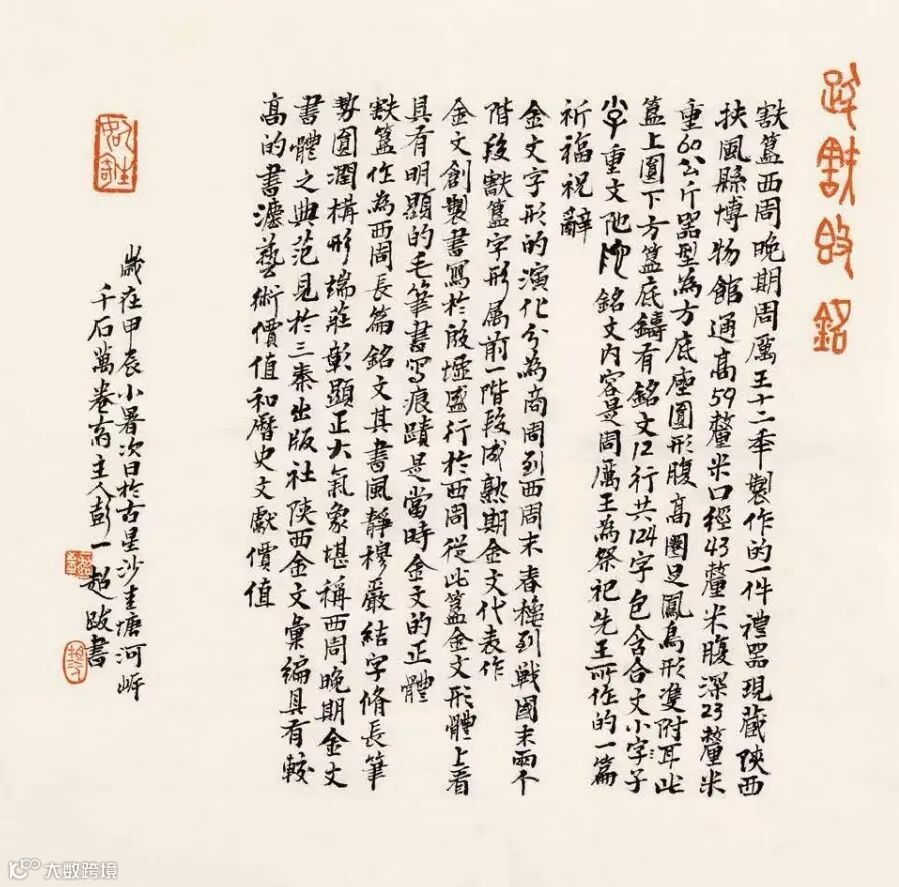 跋㝬𣪘銘
㝬簋西周晚期周厲王十二年製作的一件禮器現藏陝西
扶風縣博物館通高59釐米口徑43釐米腹深23釐米
重60公斤器型為方底座圓形腹高圈足鳳鳥形雙附耳此
簋上圓下方簋底鑄有銘文12行共124字包含合文小字子
重文阤銘文內容是周厲王為祭祀先王所作的一篇
祈福祝辭
金文字形的演化分為商周到西周末春秋到戰國末兩个
階段㝬簋字形属前一階段成熟期金文代表作
金文創製書寫於殷墟盛行於西周從此簋金文形體上看
具有明顯的毛筆書寫痕蹟是當時金文的正體
㝬簋作為西周長篇銘文其書風靜穆嚴結字脩長筆
势圓潤構形端莊彰顯正大氣象堪稱西周晚期金文
書體之典范見於三秦出版社陝西金文彙編具有較
高的書灋藝術價值和曆史文獻價值
歲在甲辰小暑次日於古星沙圭塘河岍
千石萬卷斎主人彭一超跋書
大数跨境